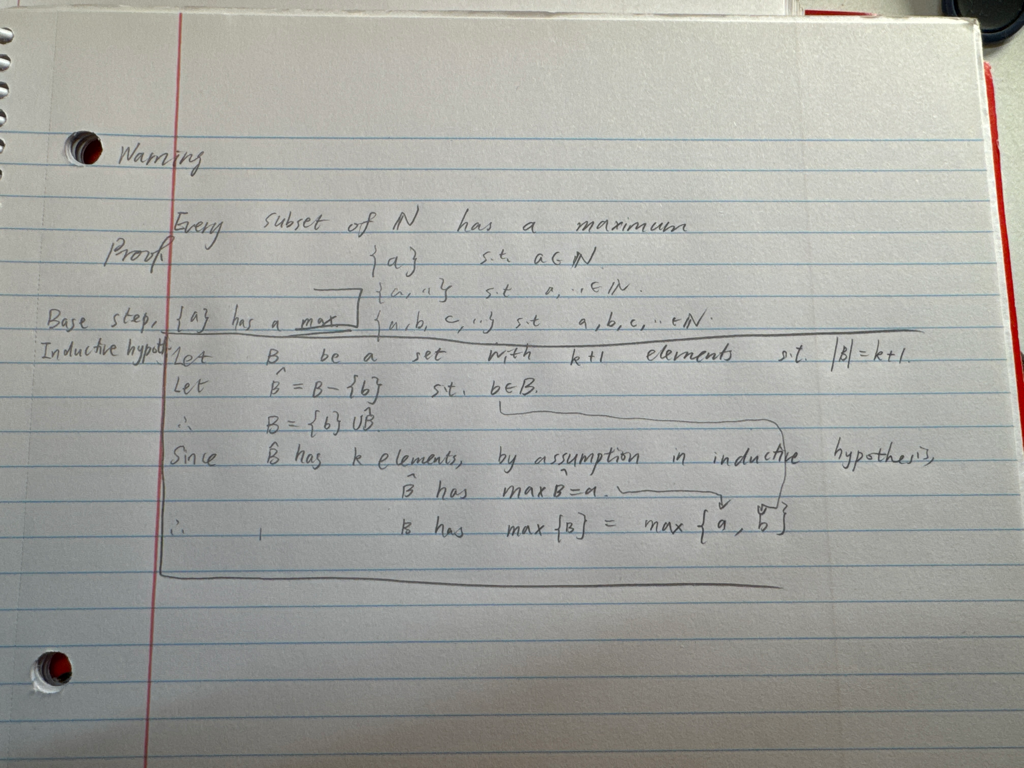 Warning
Every subset of ℕ has a maximum
Proof.
{a} s.t. a∈ℕ.
{a, ..} s.t a, ..∈ℕ.
Base step, {a} has a max. {a, b, c, ..} s.t a, b, c, ..∈ℕ.
Inductive hypoth Let B be a set with k+1 elements s.t. |B|=k+1.
Let B̂ = B-{b} s.t. b∈B.
∴ B = {b} ∪ B̂.
Since B̂ has k elements, by assumption in inductive hypothesis,
B̂ has max B̂=a.
∴ B has max {B} = max {a, b}